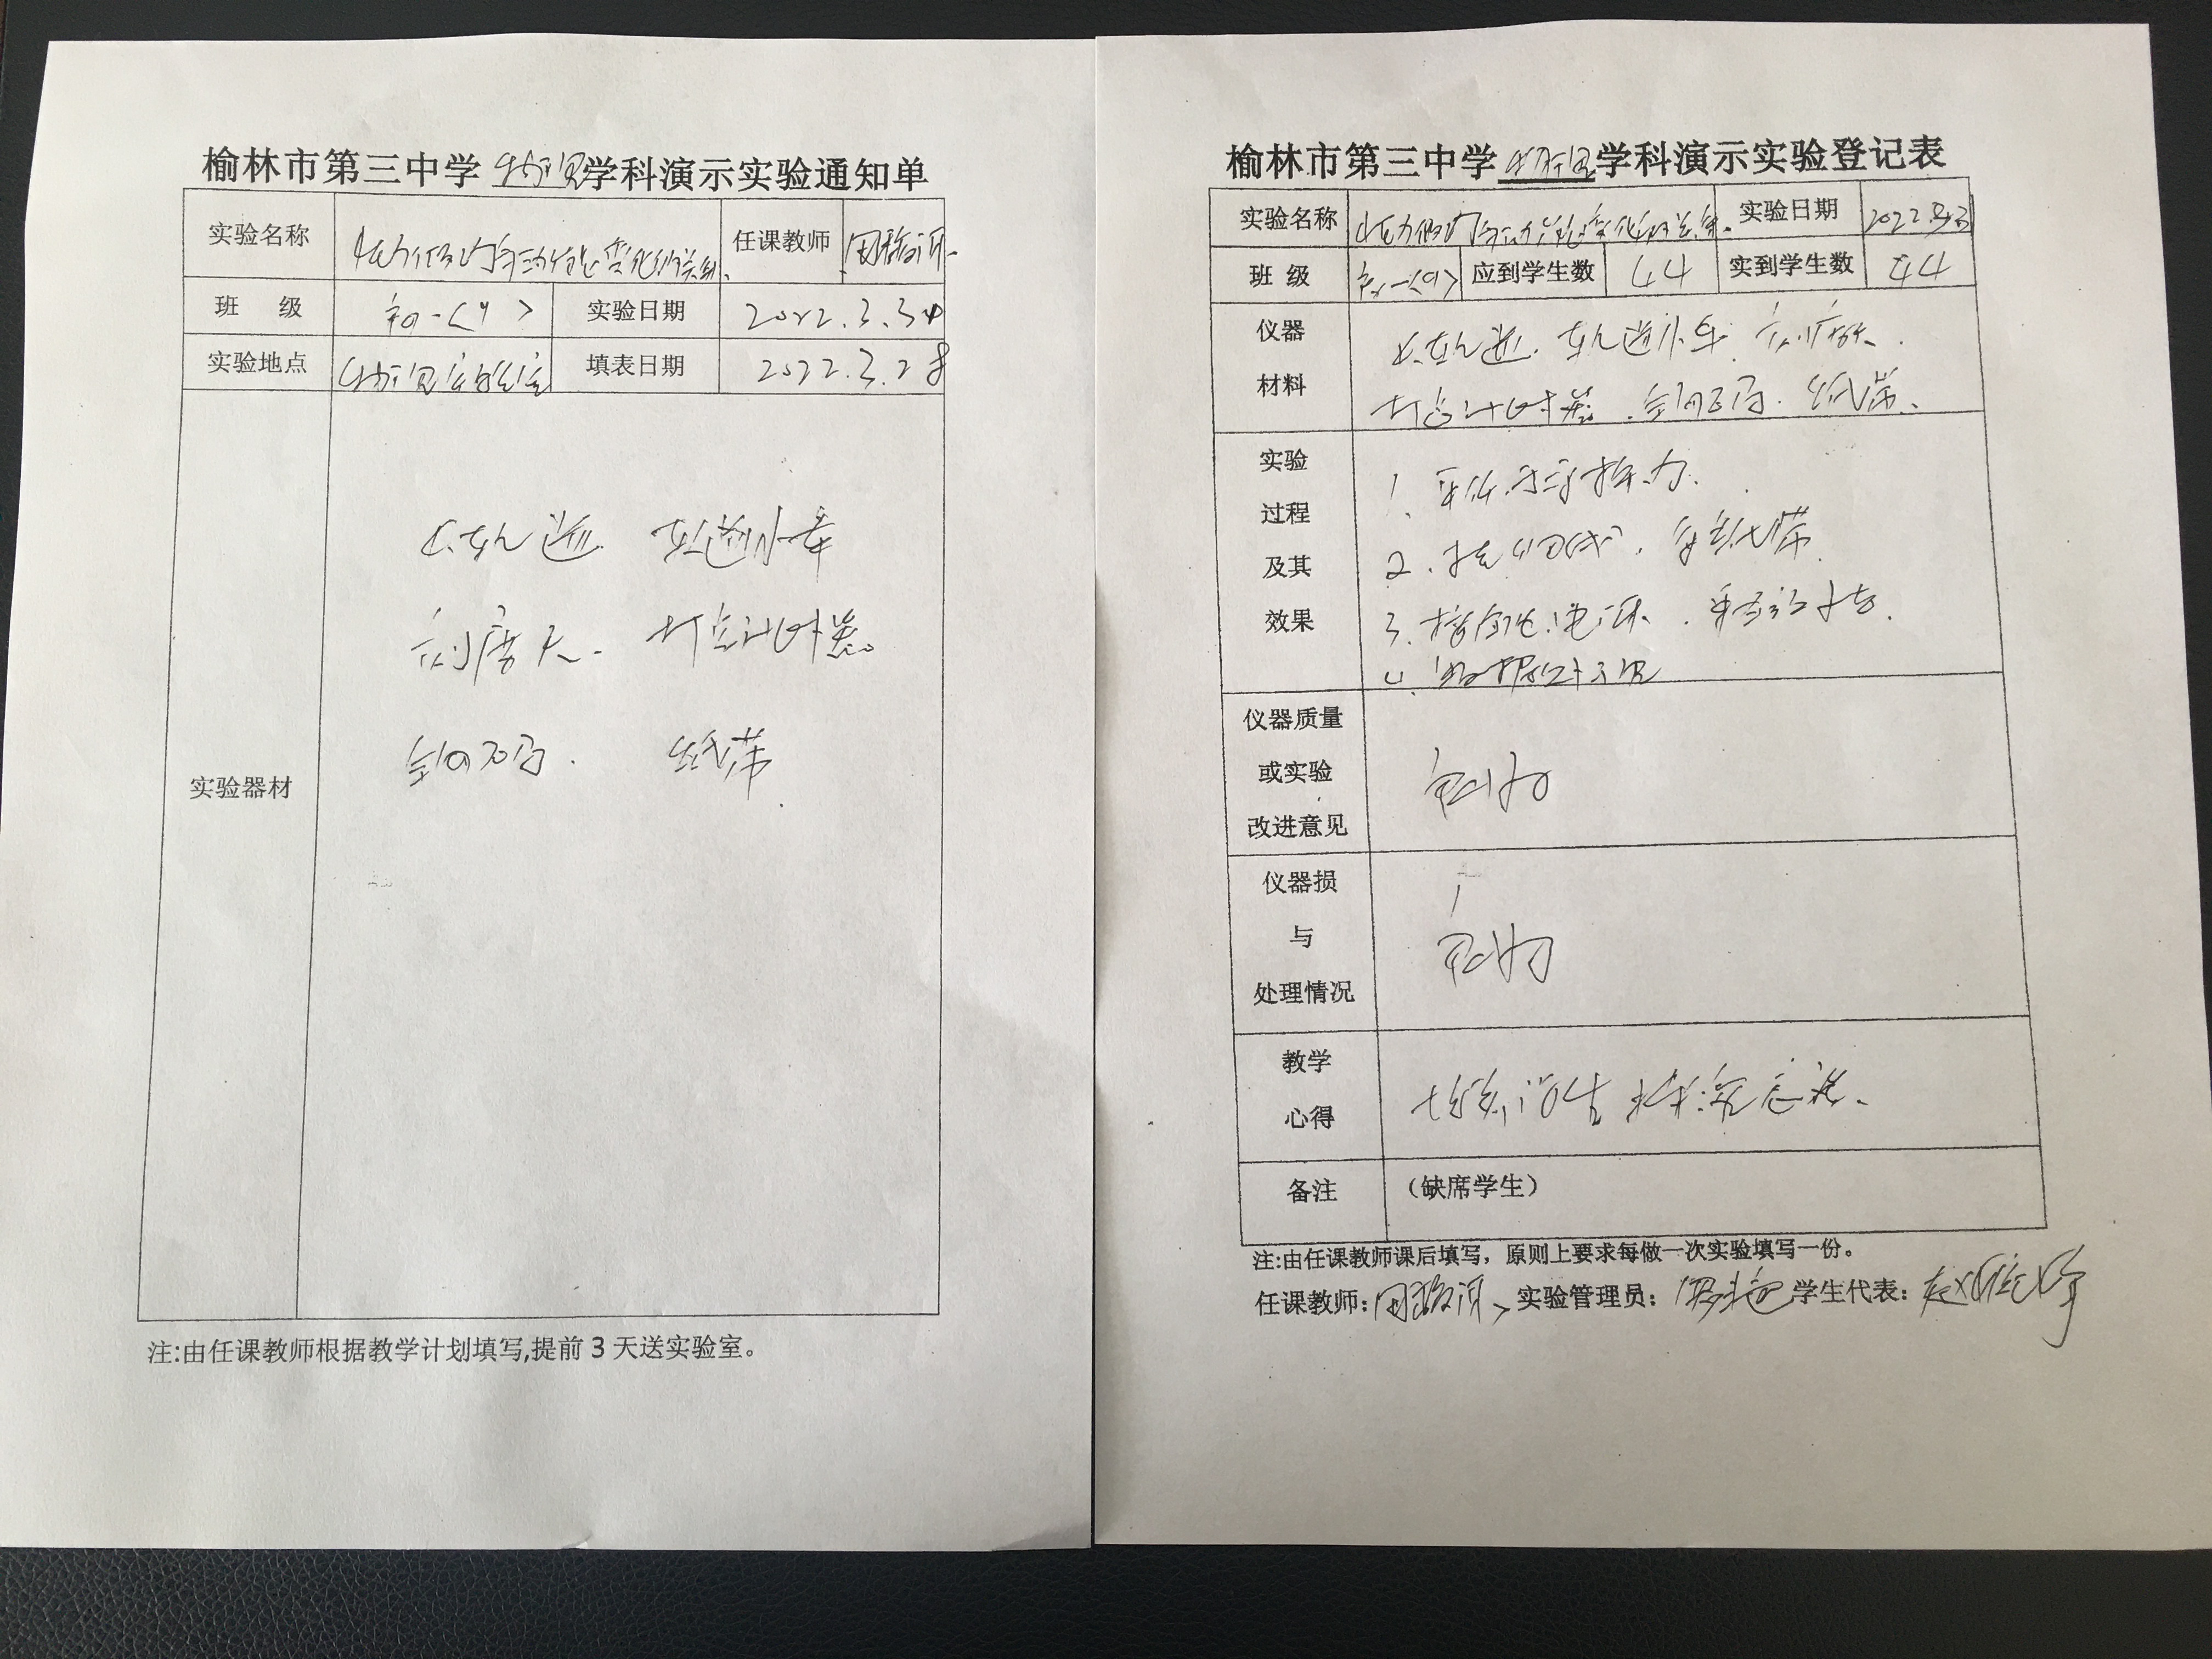 榆林市第三中学 物理学科演示实验通知单
实验名称 恒力做功与动能变化的关系 任课教师
班 级 实验日期 2022.3.30
实验地点 物理实验室 填表日期 2022.3.28
实验器材
长轨道 轨道小车
刻度尺 打点计时器
钩码 纸带
注:由任课教师根据教学计划填写,提前3天送实验室。
榆林市第三中学物理学科演示实验登记表
实验名称 恒力做功与动能变化的关系 实验日期
班 级 应到学生数 44 实到学生数 44
仪器材料
长轨道 轨道小车 刻度尺
打点计时器 钩码 纸带
实验过程及其效果
1. 平衡摩擦力
2. 挂钩码
3. 接通电源
4. 数据处理
仪器质量或实验改进意见
良好
仪器损与处理情况
良好
教学心得
培养学生探究意识
备注 (缺席学生)
注:由任课教师课后填写，原则上要求每做一次实验填写一份。
任课教师: 实验管理员: 学生代表: